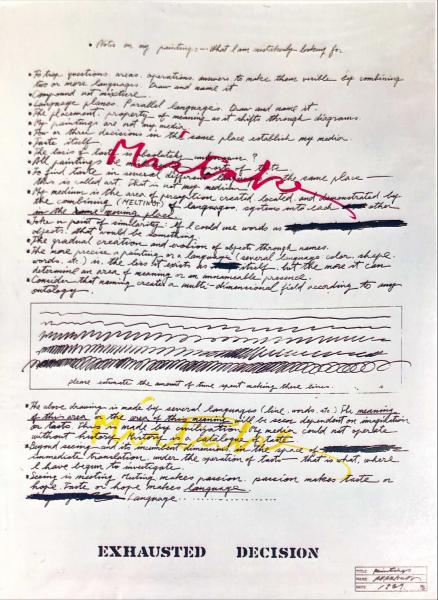 • Notes on my paintings — What I am mistakenly looking for
• To trap questions, areas, operations, answers to make them visible by combining
two or more languages. Draw and name it
• Compound not mixture.
• Language planes. Parallel languages. Draw and name it.
• The placement, property of meaning as it shifts through diagrams.
• My paintings are not my media.
• two or three decisions in the same place establish my media.
• Taste itself
• The basis of taste is absolutely unknown?
• All paintings of taste
• To find taste in several different the same place —
this is called art that is not my medium
• My medium is the area of perception created, located, and demonstrated by
the combining (MELTING) of languages, systems into each other
in the same moving place.
• Take a point of similarity: If I could use words as
objects! that would be something.
• The gradual creation and erosion of objects through names.
• The more precise a painting or a language (several language color, shape,
words, etc.) is, the less it exists as itself, but the more it can
determine an area of meaning or an unnameable presence.
• Consider that naming creates a multi-dimensional field according to my
ontology.
Mistake
please estimate the amount of time spent making these lines.
• The above drawing, as made by several languages (line, words, etc.) The meaning
of this area or the area of this meaning will be seen dependent on imagination
or taste. This made by investigation my medium could not operate
without history. History is a catalogue of taste
• Beyond seeing to incumbent dimension in the space of
immediate translation, under the operation of taste — that is what, where
I have begun to investigate.
• Seeing is meeting. Meeting makes passion, passion makes taste or
hope. Taste or hope makes language
language
Mistake
EXHAUSTED DECISION
TITLE paintings
NAME
DATE 1967